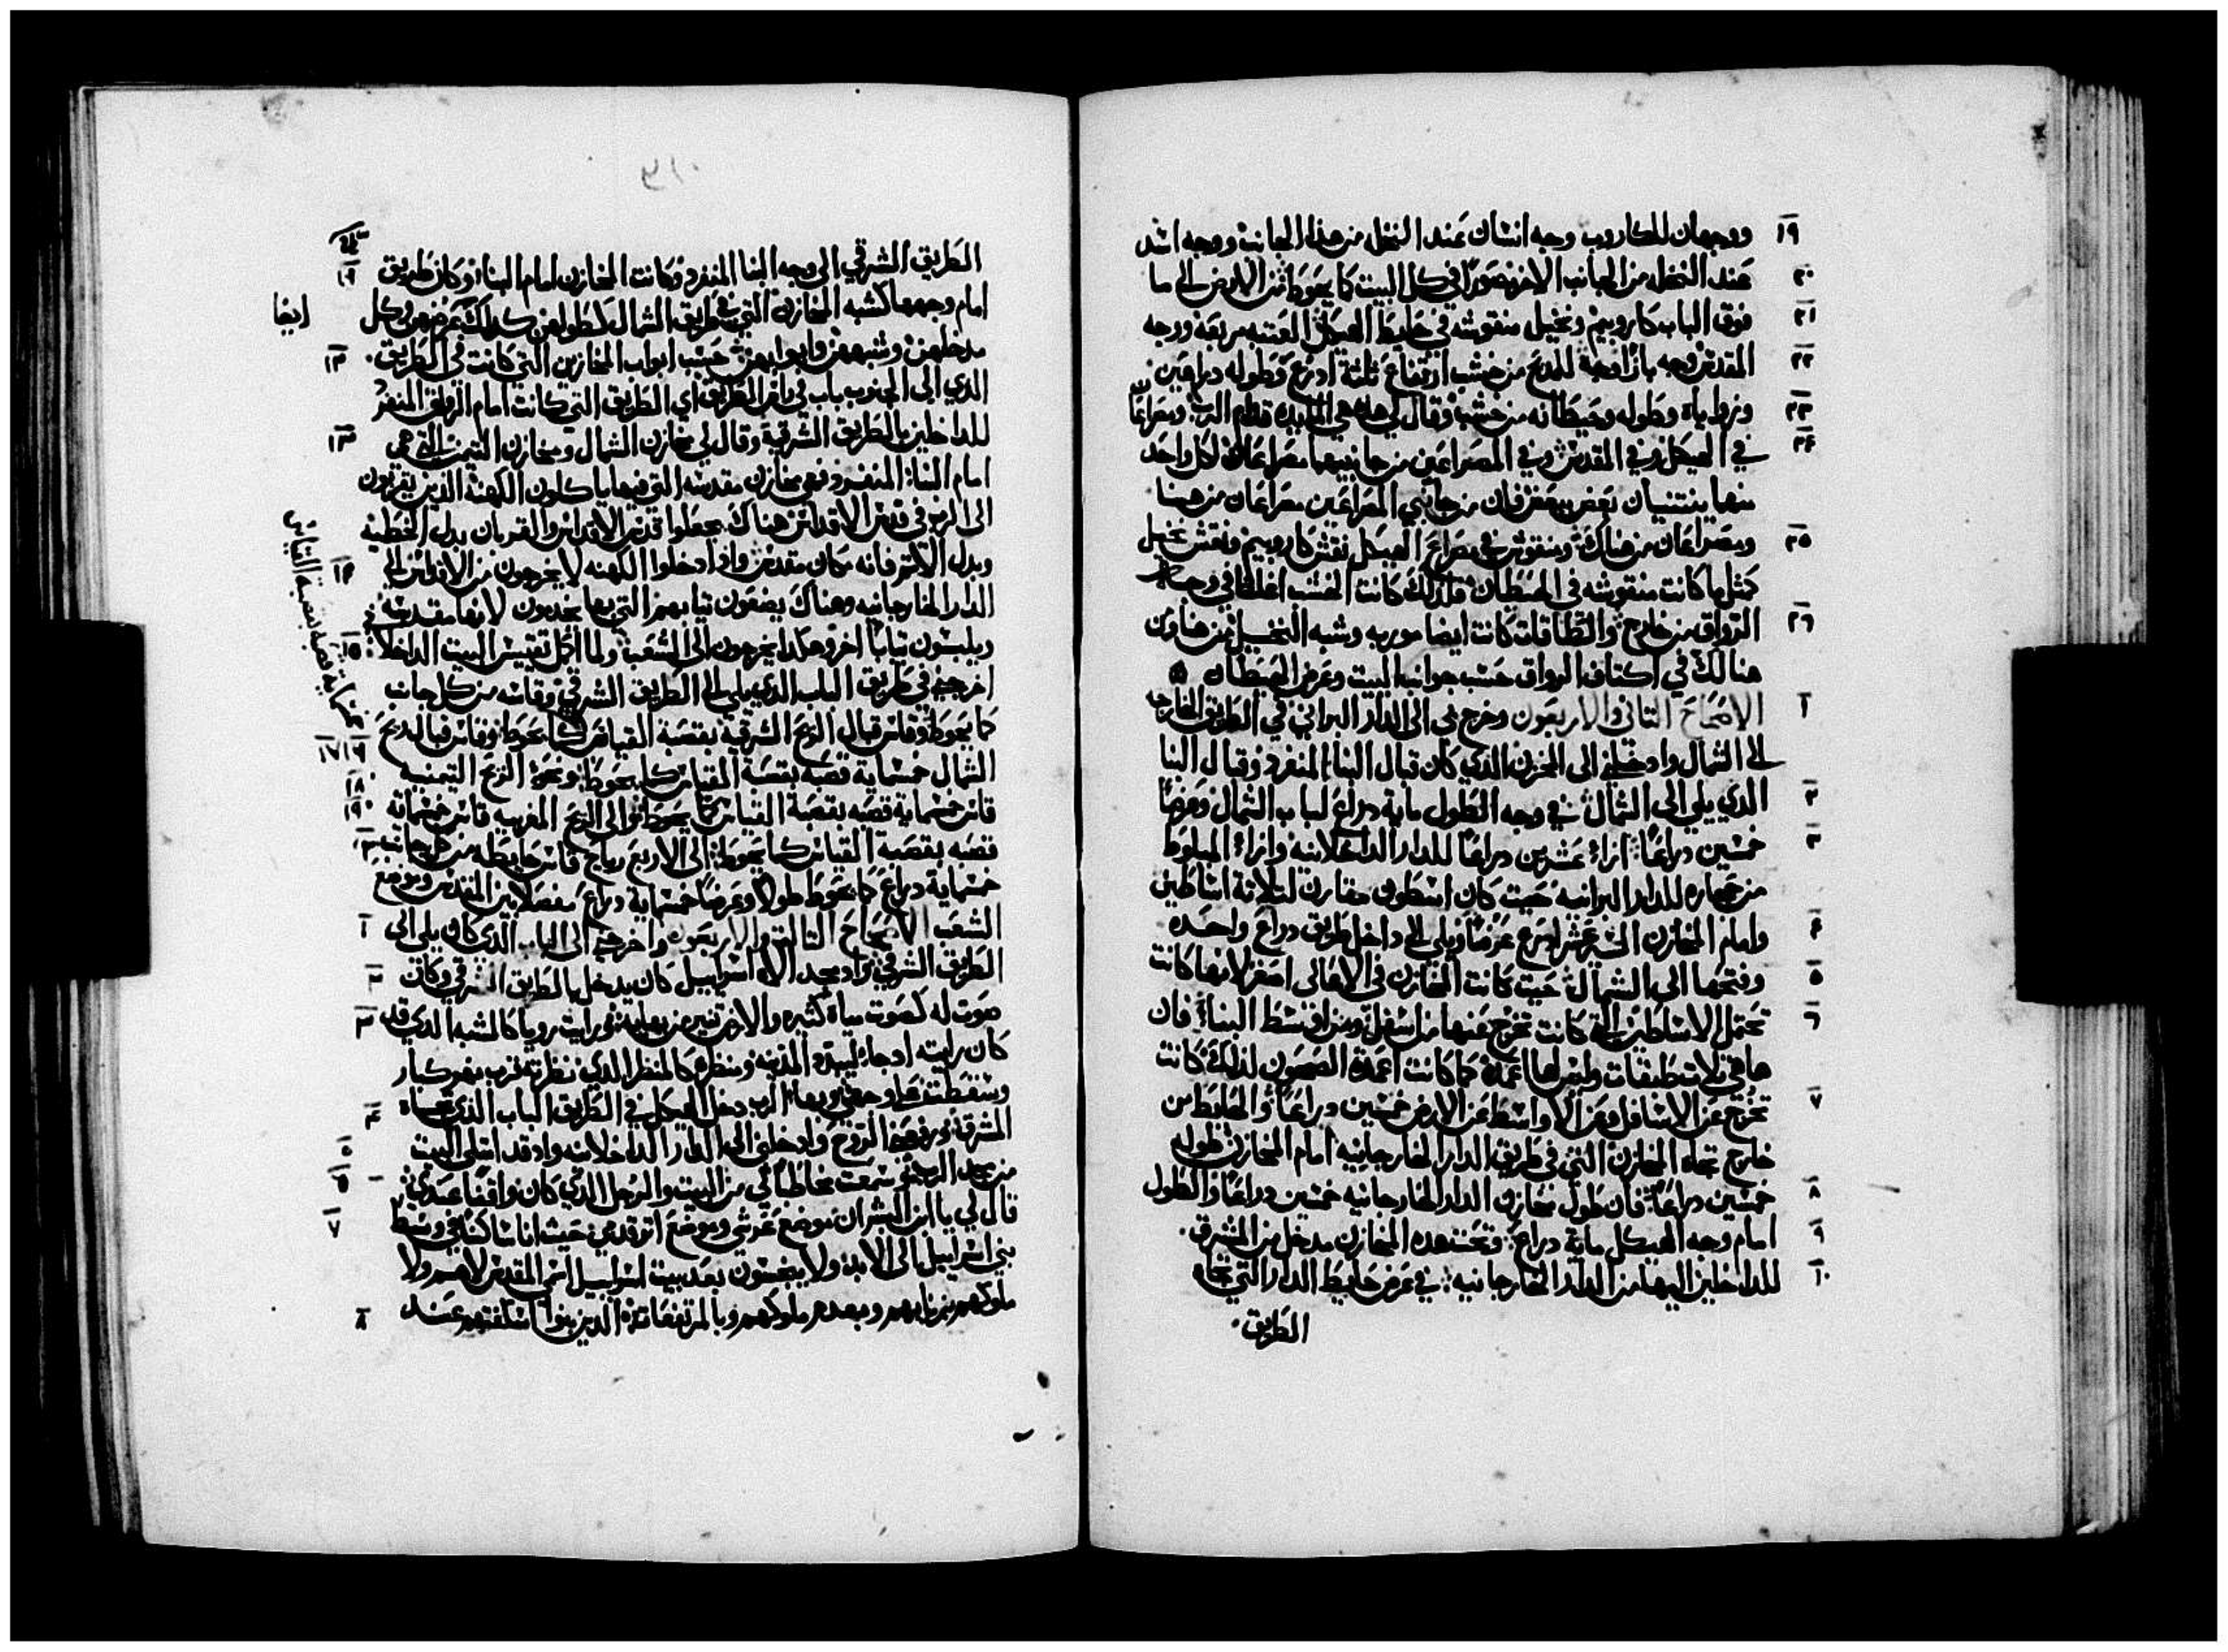 ١٩ ووجهان للكاروب وجه انسان عند النخل من هذا الجانب ووجه اسد
٢٠ عند النخل من الجانب الاخر مصورا في كل البيت كما يحوط من الارض الى ما
٢١ فوق الباب كاروبيم ونخيل منقوشه في حايط الهيكل العتبه مربعه ووجه
٢٢ المقدس وجه بازا وجه للمدبح من خشب ارتفاع ثلثة ادرع وطوله دراعين
٢٣ وزواياه وطوله وحيطانه من خشب وقال لي هذه هي المايده قدام الرب ومصراعا
٢٤ في الهيكل وفي المقدس وفي المصراعين من جانبيهما مصراعان لكل واحد
منها ينتنيان بعض ببعض فان من جانبي المصراعين مصراعان من هنا
٢٥ ومصراعان من هناك ومنقوش في مصارع الهيكل نقش كاروبيم ونقش نخيل
كمثل ما كانت منقوشه في الحيطان فلدلك كانت الخشب اغلظ في وجه
٢٦ الرواق من خارج والطاقات كانت ايضا موربه وشبه النخيل من هنا ومن
هنالك في اكتاف الرواق حسب جوانب البيت وعرض الحيطان
١ الاصحاح التاني والاربعون وخرج بي الى الدار البراني في الطريق الخارجه
الى الشمال وادخلني الى المخزن الدي كان قبال البنا المنفرد وقبال البنا
٢ الدي يلي الى الشمال في وجه الطول ماية دراع لباب الشمال وعرضا
٣ خمسين دراعا ازاء عشرين دراعا للدار الداخلانيه وازاء المبلوط
من حجاره للدار البرانيه حيت كان اسطون مقارن لتلاتة اساطين
٤ وامام المخازن الى عشر ادرع عرضا ويلي الى داخل طريق دراع واحده
٥ وفتحها الى الشمال حيت كانت المخازن في الاعالي اصغر لانها كانت
٦ تحتمل الاساطين التي كانت تخرج عنها من اسفل ومن اوسط البناء فان
ها هي تلات طبقات وليس لها اعمدة كما كانت اعمدة الصحون لدلك كانت
٧ تخرج عن الاسافل وعن الاواسط عن الارض خمسين دراعا والحايط من
خارج تجاه المخازن التي في طريق الدار الخارجانيه امام المخازن طوله
٨ خمسين دراعا فان طول مخازن الدار الخارجانيه خمسين دراعا والطول
٩ امام وجه الهيكل ماية دراع وتحت هده المخازن مدخل من المشرق
١٠ للداخلين اليها من الدار الخارجانيه في عرض حايط الدار التي تجاه
الطريق
الطريق الشرقي الى وجه البنا المنفرد وكانت المخازن امام البناء وكان طريق ١١
امام وجهها كشبه المخازن التي في طريق الشمال كطولهن كدلك عرضهن وكل
ايضا
مدخلهن وشبههن وابوابهن حسب ابواب المخازن التي كانت في الطريق ١٢
الدي الى الجنوب باب في راس الطريق اي الطريق التي كانت امام الرواق المنفرد
للداخلين بالطريق الشرقية وقال لي مخازن الشمال ومخازن التيمن التي هي ١٣
امام البناء المنفرد فهي مخازن مقدسه التي فيها ياكلون الكهنة الدين يقربون
الى الرب في قدس الاقداس هناك يجعلوا قدس الاقداس والقربان بدل الخطيه
وبدل الاتم فانه مكان مقدس وادا دخلوا الكهنه لا يخرجون من الاقداس الى ١٤
الدار الخارجانيه وهناك يضعون تيابهم التي بها يخدمون لانها مقدسه
ويلبسون تيابا اخر وهكدا يخرجون الى الشعب ولما اكمل تقييس البيت الداخلا ١٥
اخرجني في طريق الباب الدي يلي الى الطريق الشرقي وقاسه من كل جانب
كما يحوط وقاس قبال الريح الشرقية بقصبة القياس كما يحوط وقاس قبال ريح ١٦ ١٧
خمسماية قصبه بقصبة القياس
الشمال خمسماية قصبه بقصبة القياس كما يحوط ونحو الريح التيمنيه ١٨
قاس خمسماية قصبه بقصبة القياس كما يحوط والى الريح المغربيه قاس خمسماته ١٩
قصبه بقصبة القياس كما يحوط الى الاربع رياح قاس حايطه من كل جانب ٢٠
خمسماية دراع كما يحوط طولا وعرضا خمسماية دراع مفصلا بين المقدس وموضع
الشعب الاصحاح التالت والاربعون واخرجني الى الباب الدي كان يلي الى ١
الطريق الشرقي وادا مجد الاه اسراييل كان يدخل بالطريق الشرقي وكان ٢
صوت له كصوت مياه كثيره والارض تنير من بهايه ورايت رويا كالشبه الدي قد ٣
كان رايته ادجاء ليبيد المدينه ومنظره كالمنظر الدي نظرته قرب نهر كبار
وسقطت على وجهي وبهاء الرب دخل الهيكل في الطريق الباب الدي تجاه ٤
المشرق ورفعني الروح وادخلني الى الدار الداخلانيه وادقد امتلى البيت ٥
من مجد الرب وسمعت مخاطبا لي من البيت والرجل الدي كان واقفا عندي ٦
قال لي يا ابن البشر ان موضع عرشي وموضع اتر قدمي حيت انا ساكنا في وسط ٧
بني اسراييل الى الابد ولا ينجسون بعد بيت اسراييل اسم المقدس لا هم ولا
ملوكهم بزناهم وبعدهم ملوكهم وبالمرتفعات الدين بنوا اسكفتهم عند ٨